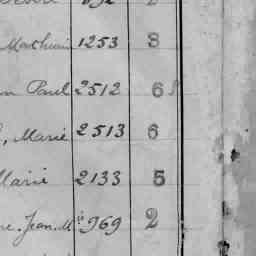 Mathurin 1253 8
Paul 2512 6
, Marie 2513 6
Marie 2133 5
Jean. M 969 2